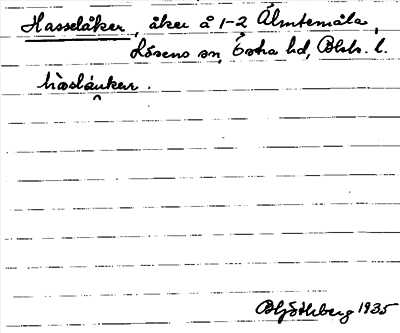 Hasselåker, åker å 1-2 Älmtemåla,
Lösens sn, Östra hd, Blek. l.
hàslåuker.
1935